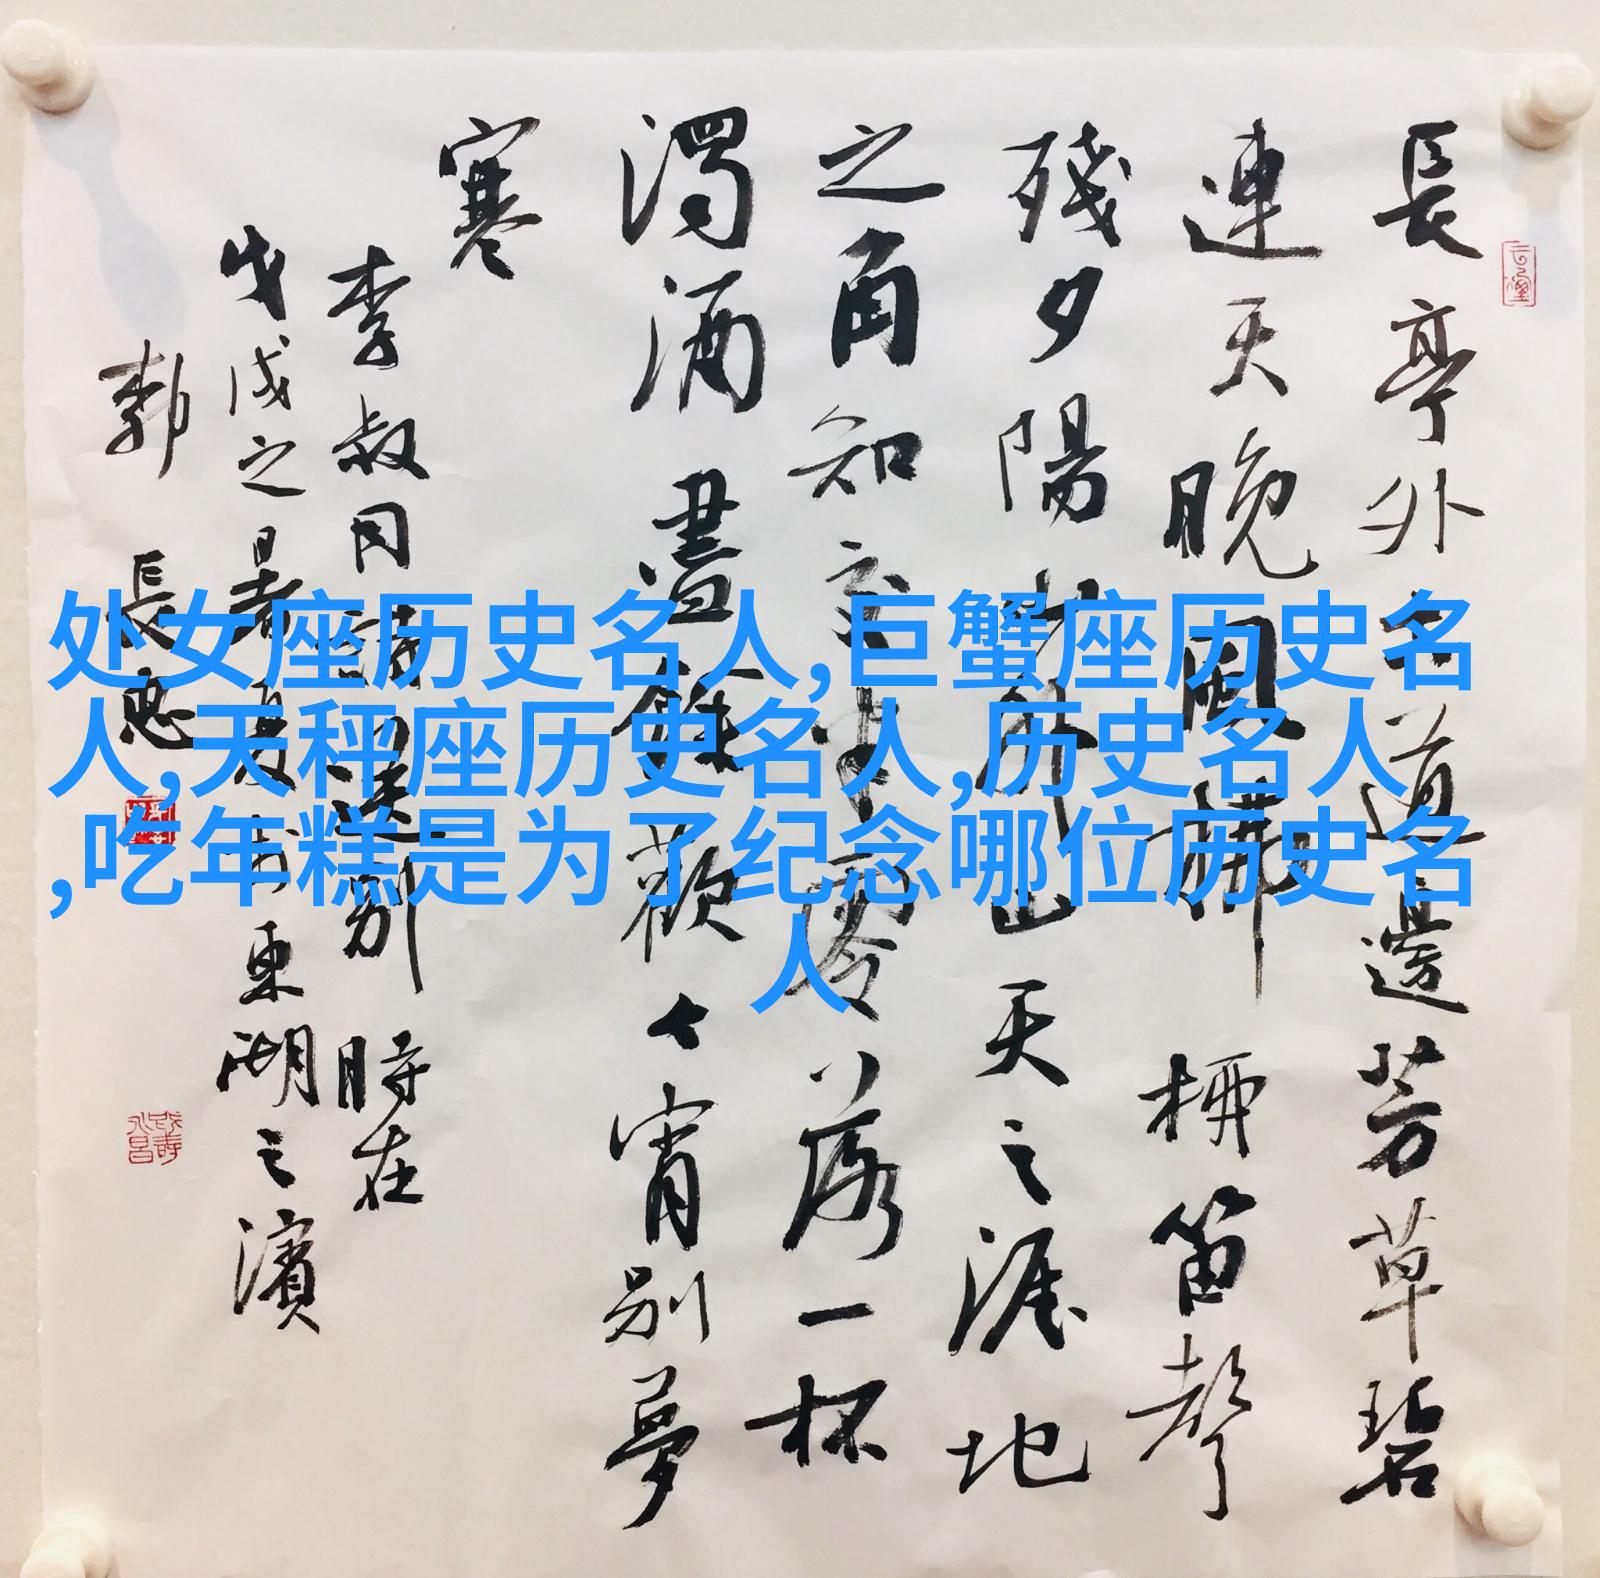 長亭外古道邊芳草碧
連天晚風拂柳笛聲
殘夕陽山外山天之涯地
之角知交半零落一杯
濁酒盡餘歡今宵別夢
寒
李叔同詩送別 時在
戊戌之暑夏於東湖之濱
郭長忠
处女座历史名人,巨蟹座历史名
人,天秤座历史名人,历史名人
,吃年糕是为了纪念哪位历史名
人